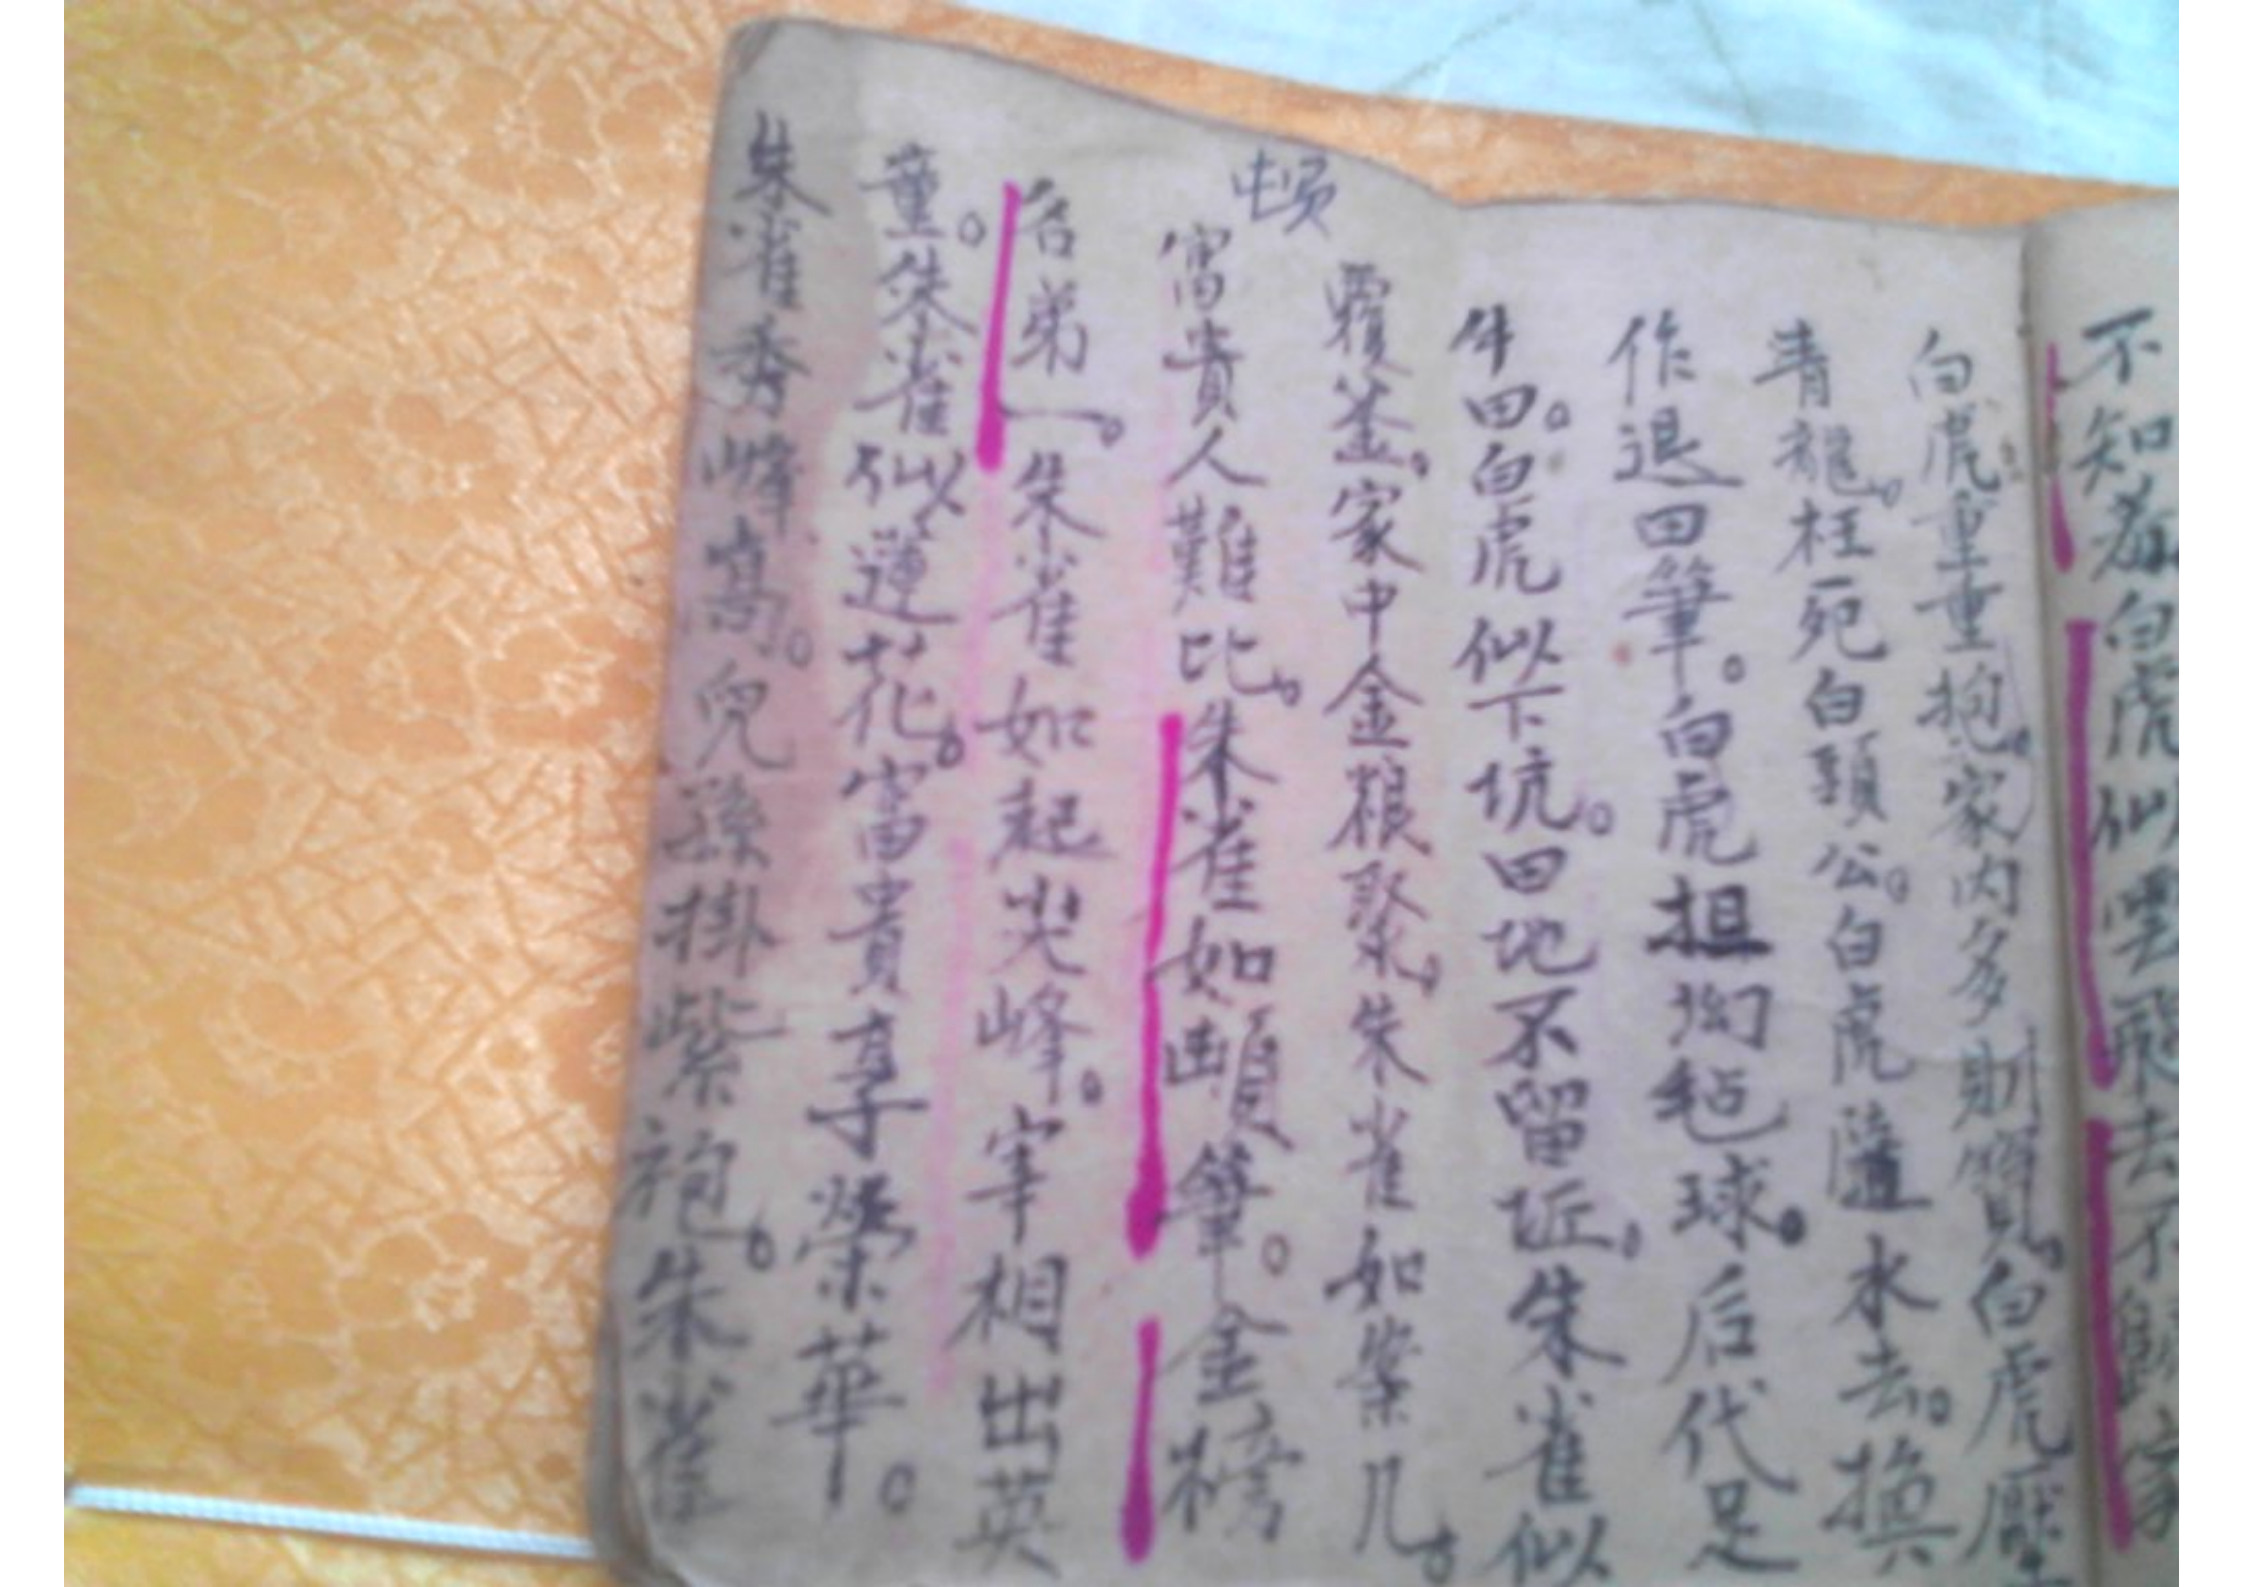 不知着白虎似里飛去不歸家
白虎重重抱。家内多財寶。白虎壓
青龍。枉死白頭公。白虎隨水去。換
作退田筆。白虎担拗毡球。后代足
牛田。白虎似下坑。田地不留坵。朱雀似
覆釜。家中金粮聚。朱雀如案几。
富貴人難比。朱雀如頓筆。金榜
頓
名弟一。朱雀如起尖峰。宰相出英
童。朱雀似蓮花。富貴享榮華。
朱雀秀峰高。兒孫掛紫袍。朱雀